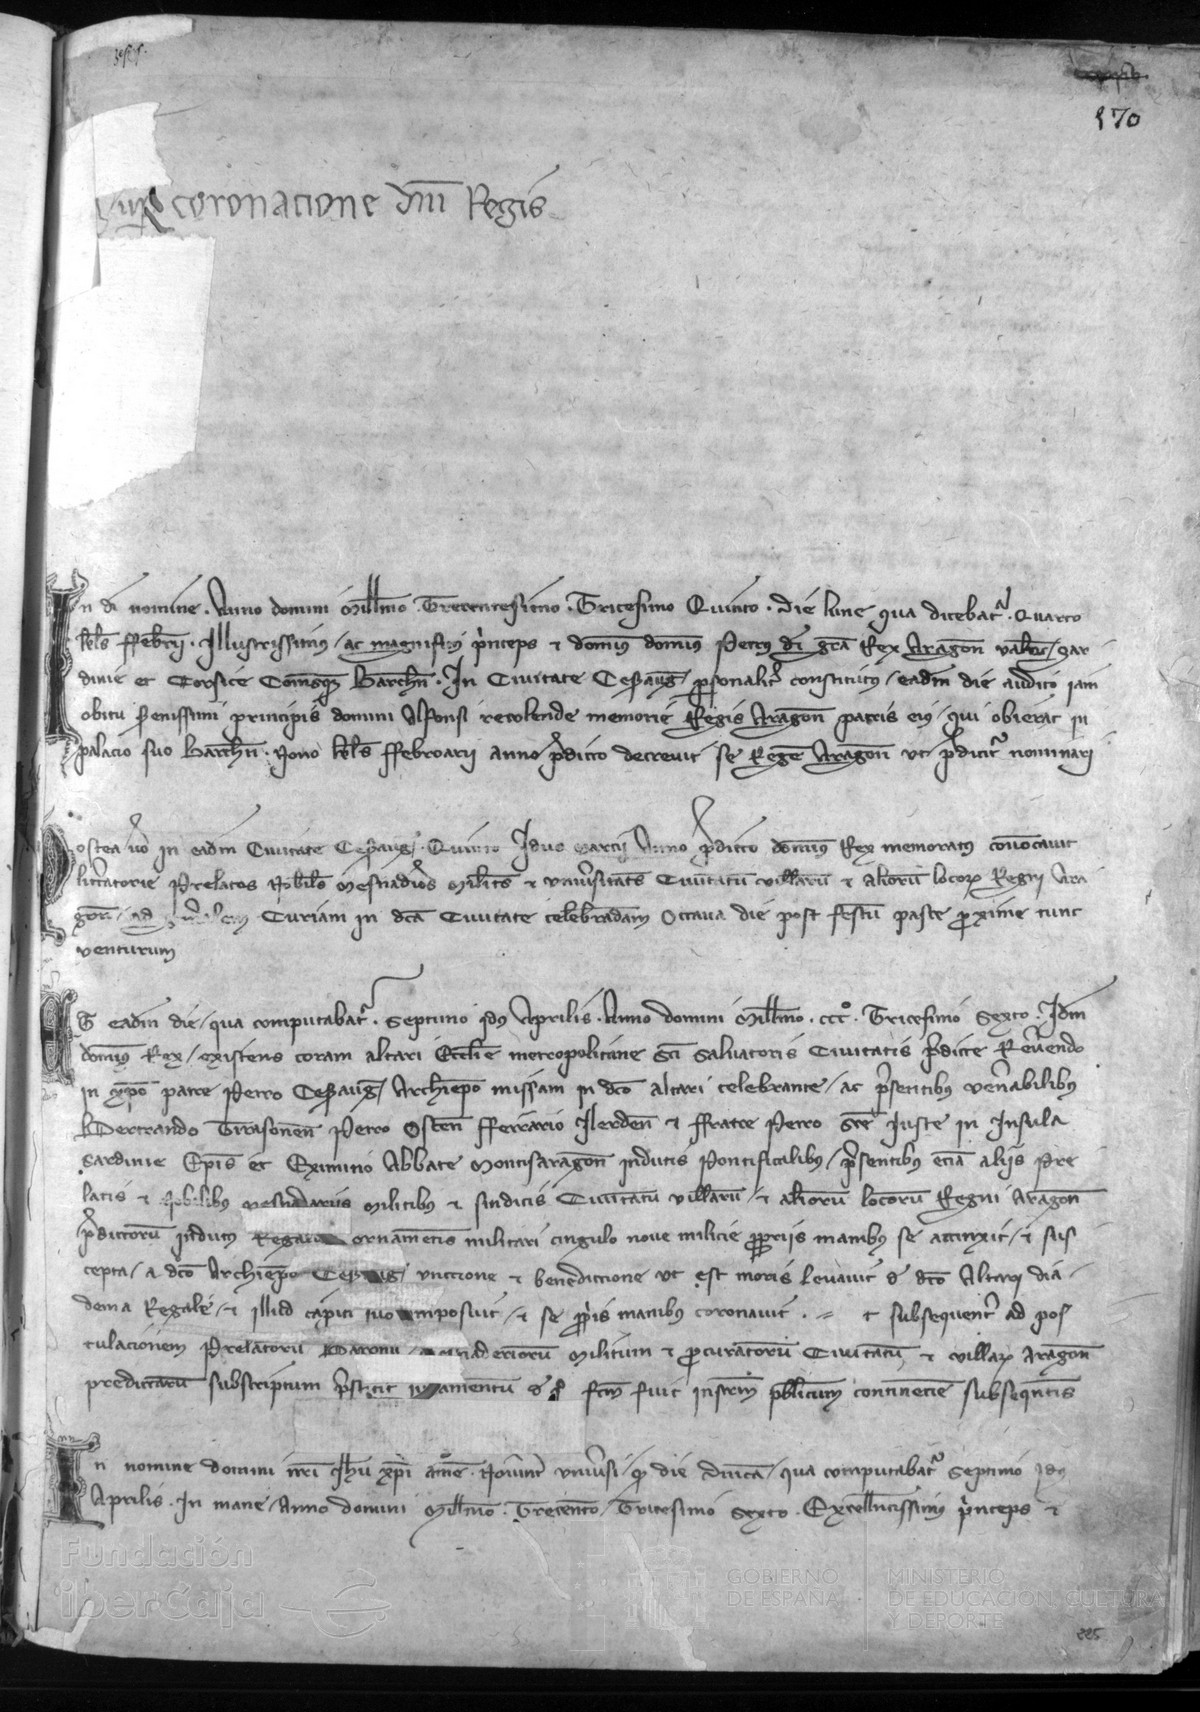 170
Super coronacione dni Regis
In di nomine. Anno domini Millmo Trecentesimo. Tricesimo Quinto. die lune qua dicebatr. Quarto
kls ffebrii. Illustrissimus / ac magnificus pinceps & domus domus Petrus di gra Rex Aragon valenc / Sar
dinie et Corsice Comesq Barchn. In Civitate Cesaraug / psonalit constitutus / eadem die audito iam
obitu Senissimi principis domini Alfonsi recolende memorie Regis Aragon patris eius / qui obierat in
palacio suo Barchn. Nono kls ffebroarii anno pdicto decrevit se Rege Aragon ut pdicitr nominari
Postea vo in eadem Civitate Cesaraug. Quinto Idus Marcii Anno pdicto domus Rex memoratus convocavit
litteratorie Prelatos Nobiles Mesnadios Milites & univsitates Civitatu villaru & alioru locor Regni Ara
gon / ad Curiam in dca Civitate celebradam Octava die post festu pasce proxime tunc
venturum
Et eadem die / qua computabatr. Septimo idus Aprilis. Anno domini Millmo. ccc°. Tricesimo Sexto. Idem
domus Rex / existens coram altari Ecclie metropolitane Sci Salvatoris Civitatis pdicte Revendo
in xpo patre Petro Cesaraug / Archiepo missam in dco altari celebrante / ac psentibus venabilibus
Bertrando Tirasonen Petro Oscen fferrario Ilerden & ffratre Petro Sce Iuste in Insula
Sardinie Epis et Eximino Abbate Montisaragon indutis Pontificalibus / psentibus ecia aliis Pre
latis & Nobilibus Mesnadariis Militibus & sindicis Civitatu villaru / & alioru locoru Regni Aragon
pdictoru indutus Regalibus ornametis militari cingulo nove milicie propriis manibus se accinxit / & sus
cepta / a dco Archiepo Cesaraug / unctione & benedictione ut est moris levavit de dco Altari dia
dema Regale / & illud capiti suo imposuit / & se pprijs manibus coronavit. = Et subsequent ad pos
tulacionem Prelatoru Baronu / Mesnaderioru Militum & pcuratoru Civitatu & villar Aragon
predictaru subscriptum pstitit iuramentu de quo fcm fuit instrm pblicum continecie subseqntis
In nomine domini nri Ihu xpi ame. Novint univsi / q die dnica / qua computabatr Septimo Idus
Aprilis. In mane / Anno domini Millmo. Trecento. Tricesimo Sexto. Excellentissimus pinceps &
Fundación
iberCaja
GOBIERNO
DE ESPAÑA
MINISTERIO
DE EDUCACIÓN, CULTURA
Y DEPORTE
225